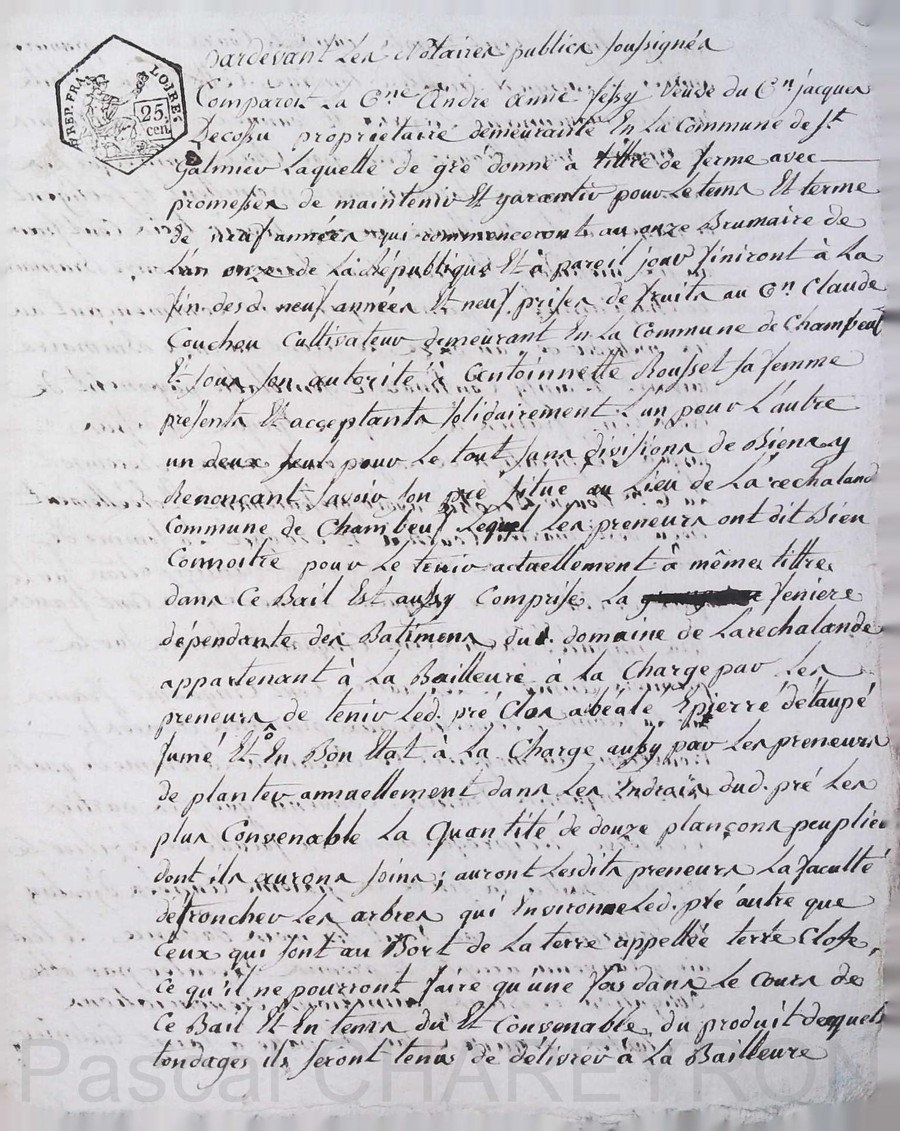 REP. FRA. LOIRE
25.
cen.
Pardevant Les Notaires publics soussignés
Comparoit La C.ne Andre Anne Veuve du C.n jacques
Decossu propriétaire demeurante En La Commune de S.t
Galmier Laquelle de gré donne à tittre de ferme avec
promesses de maintenir Et garantir pour Le tems Et terme
de neuf années qui commenceront au onze Brumaire de
L'an onze de La République Et à pareil jour finiront à La
fin des d. neuf années Et neuf prises de fruits au C.n Claude
Couchou Cultivateur demeurant En La Commune de Chambeuf
Et sous son autorité à Antoinnette Rousset sa femme
présents Et acceptants solidairement L'un pour L'autre
un deux seul pour Le tout sans divisions de Biens y
Renonçant savoir son pré situé au Lieu de La rechaland
Commune de Chambeuf Lequel Les preneurs ont dit Bien
Connoitre pour Le tenir actuellement à même tittre
dans Ce Bail Est aussy Comprise La feniere
dépendante des Batimens dud. domaine de Larechalande
appartenant à La Bailleure à La Charge par Les
preneurs de tenir Led. pré Clos abéalé Epierré détaupé
fumé Et En Bon Etat à La Charge aussy par Les preneurs
de planter annuellement dans Les Endrais dud. pré Les
plus Convenable La Quantité de douze plançons peuplier
dont ils aurons soins ; auront Lesdits preneurs La faculté
de troncher Les arbres qui Environne Led. pré autre que
Ceux qui sont au Bort de La terre appellée terre Close,
Ce qu'il ne pourront faire qu'une fois dans Le Cours de
Ce Bail Et En tems du Et Convenable, du produit desquels
tondages ils seront tenus de délivrer à La Bailleure
Pascal CHAREYRON